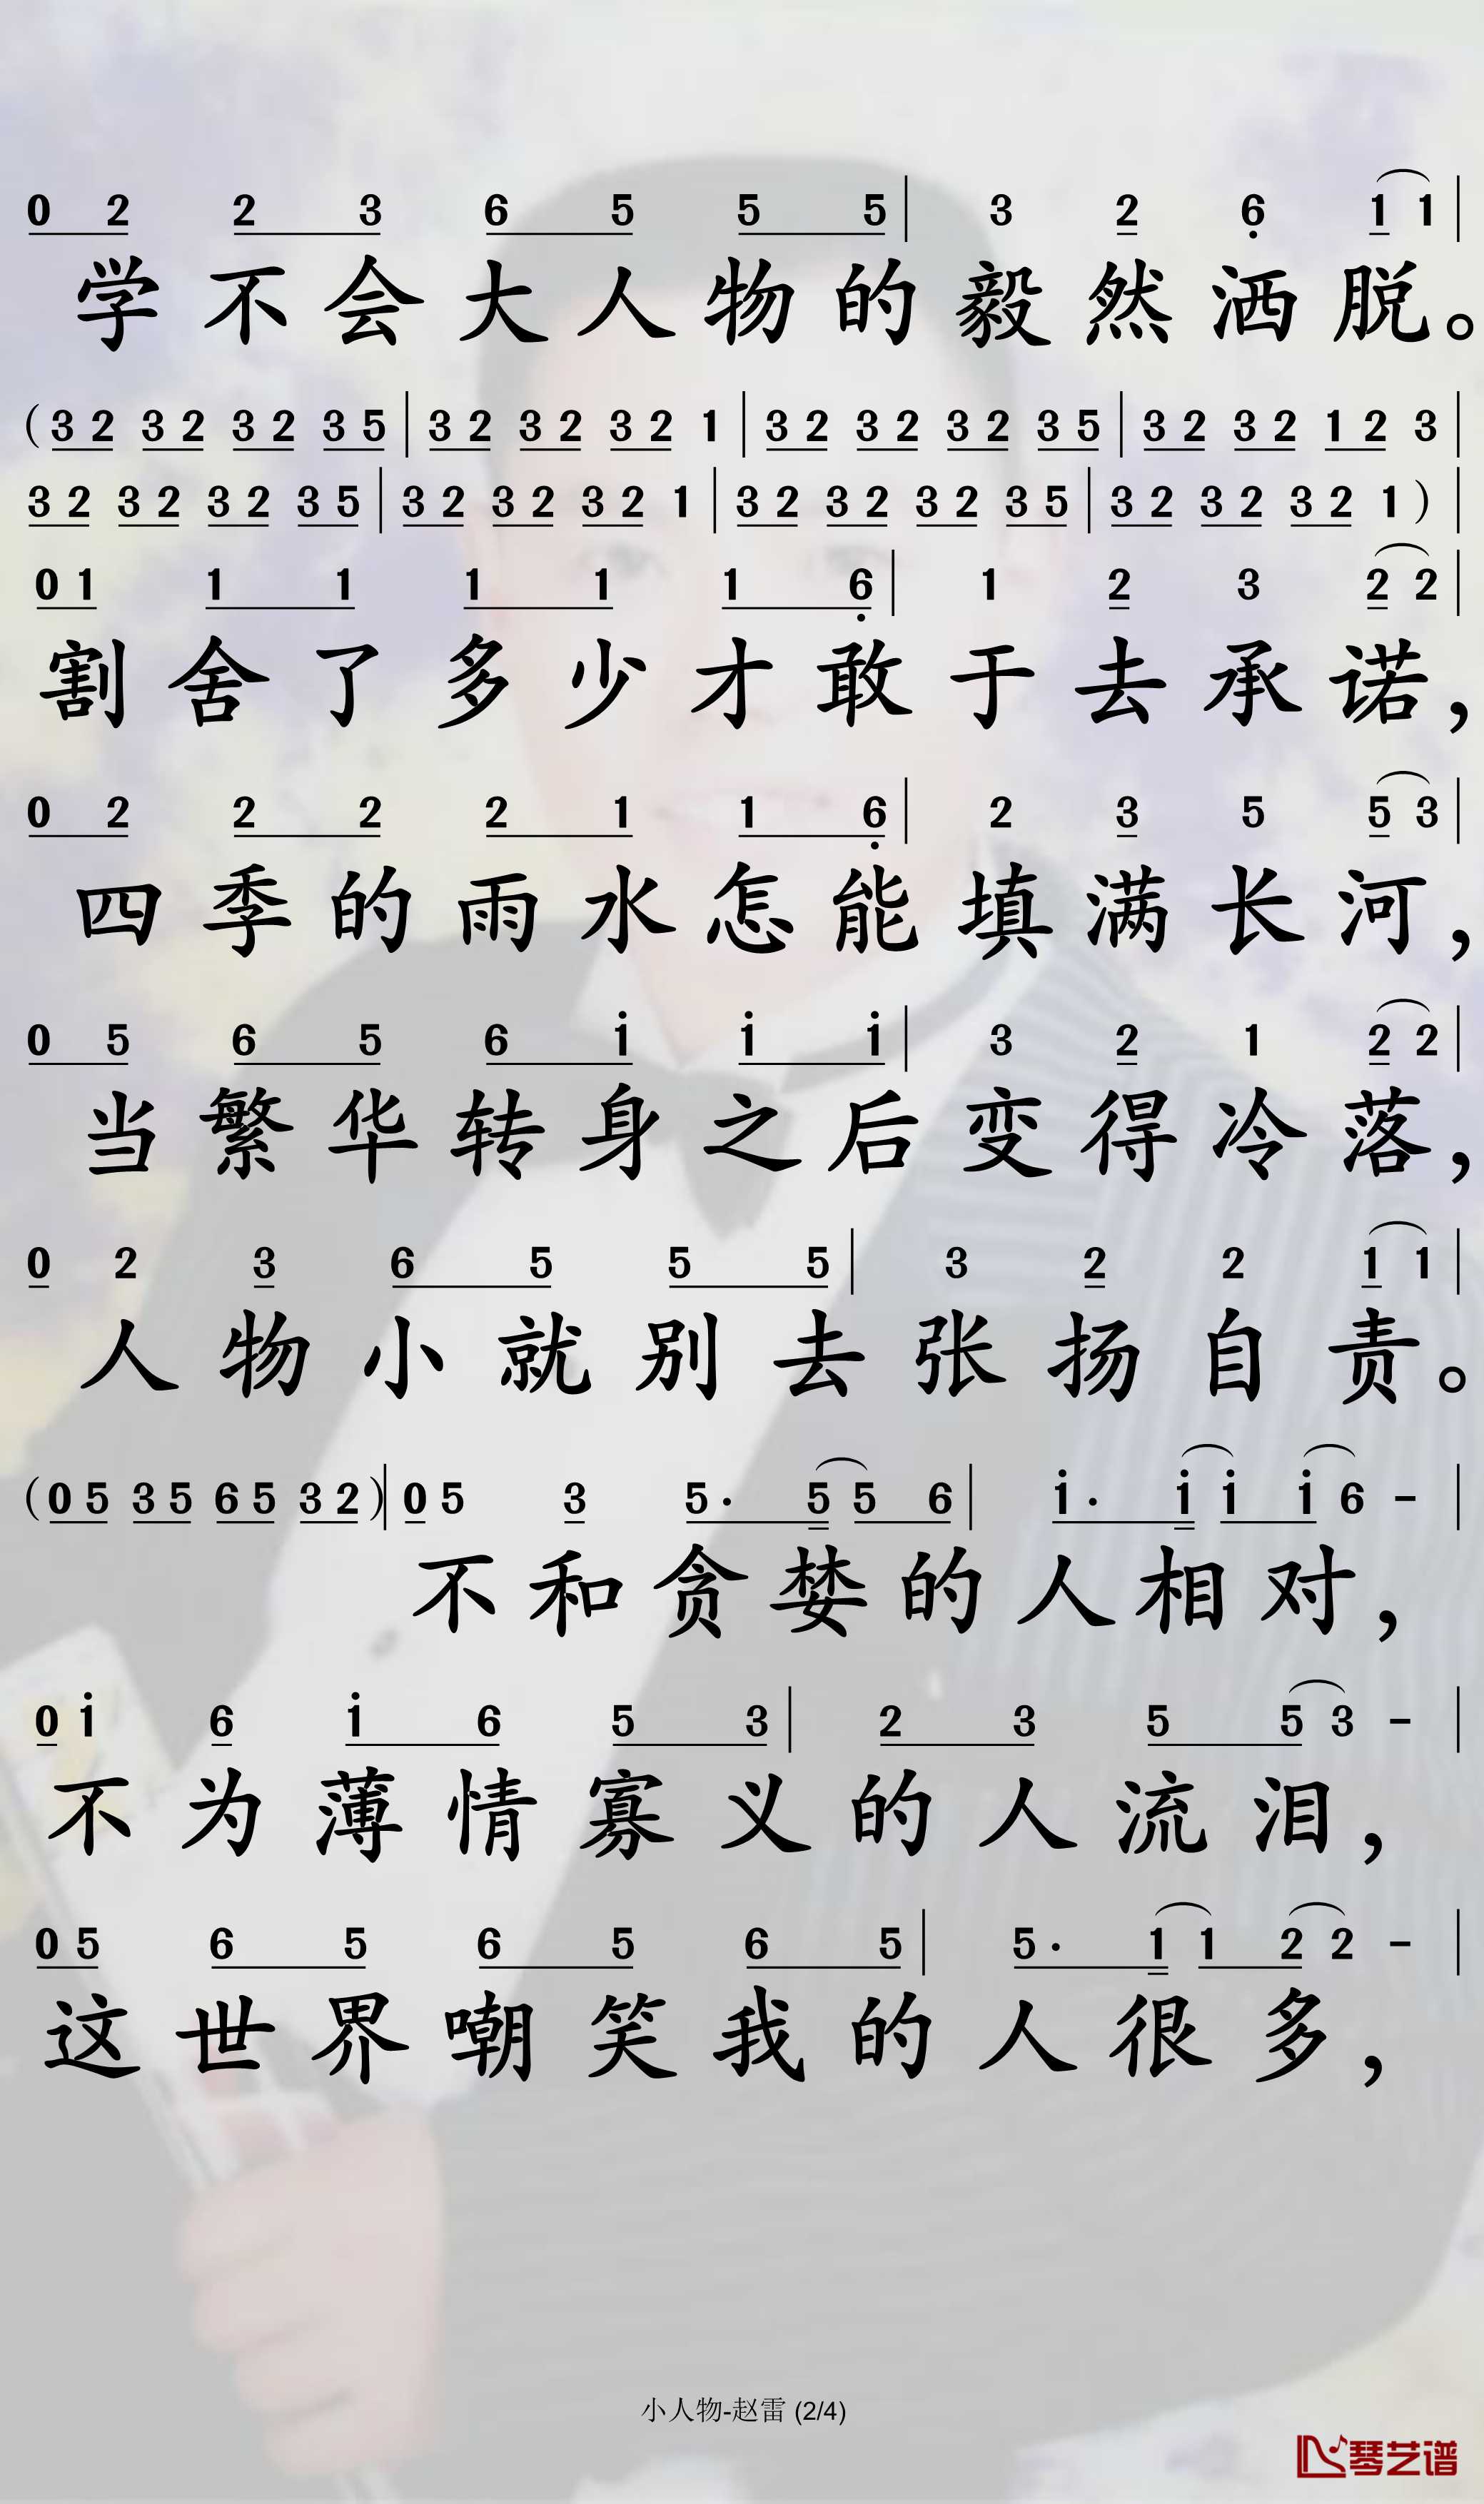 0 2 2 3 6 5 5 5 | 3 2 6̣ 1 1 |
学不会大人物的毅然洒脱。
(3 2 3 2 3 2 3 5 | 3 2 3 2 3 2 1 | 3 2 3 2 3 2 3 5 | 3 2 3 2 1 2 3 |
3 2 3 2 3 2 3 5 | 3 2 3 2 3 2 1 | 3 2 3 2 3 2 3 5 | 3 2 3 2 3 2 1) |
0 1 1 1 1 1 1 6̣ | 1 2 3 2 2 |
割舍了多少才敢于去承诺，
0 2 2 2 2 1 1 6̣ | 2 3 5 5 3 |
四季的雨水怎能填满长河，
0 5 6 5 6 1̇ 1̇ 1̇ | 3 2 1 2 2 |
当繁华转身之后变得冷落，
0 2 3 6 5 5 5 | 3 2 2 1 1 |
人物小就别去张扬自责。
(0 5 3 5 6 5 3 2) | 0 5 3 5· 5 5 6 | 1̇· 1̇ 1̇ 1̇ 6 - |
不和贪婪的人相对，
0 1̇ 6 1̇ 6 5 3 | 2 3 5 5 3 - |
不为薄情寡义的人流泪，
0 5 6 5 6 5 6 5 | 5· 1 1 2 2 - |
这世界嘲笑我的人很多，
小人物-赵雷 (2/4)
琴艺谱